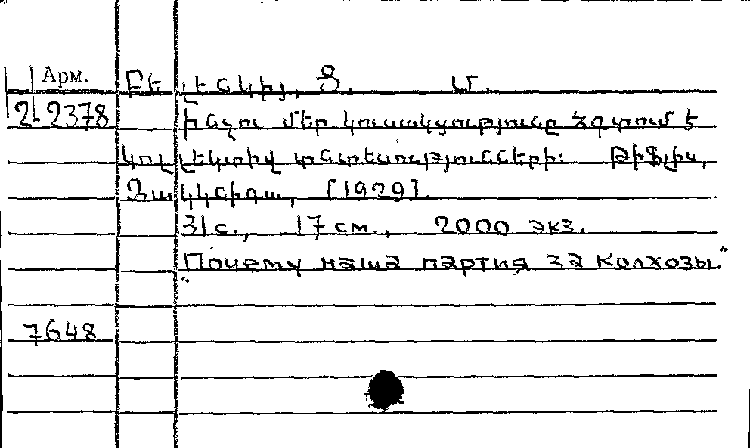 Арм. Բելենկիյ, Յ. Մ.
2-2378 Ինչու մեր կուսակցությունը ձգտում է
կոլլեկտիվ տնտեսությունների: Թիֆլիս,
Զակկնիգա, [1929].
31 с., 17 см., 2000 экз.
„Почему наша партия за колхозы.“
7648